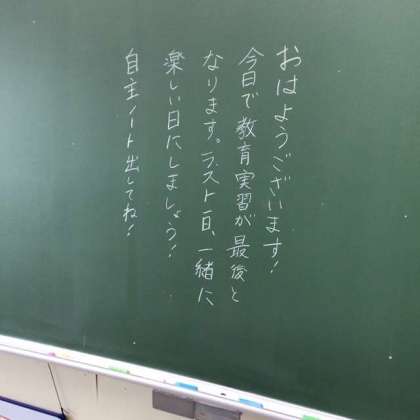 おはようございます!
今日で教育実習が最後と
なります。ラスト1日、一緒に、
楽しい日にしましょう!
自主ノート出してね!